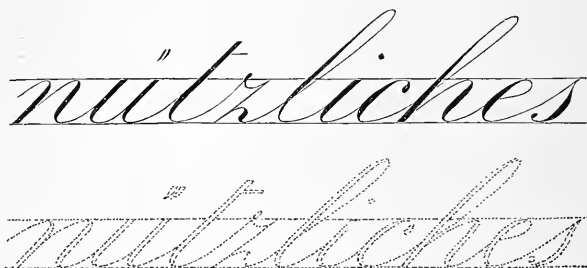 nützliches
nützliches